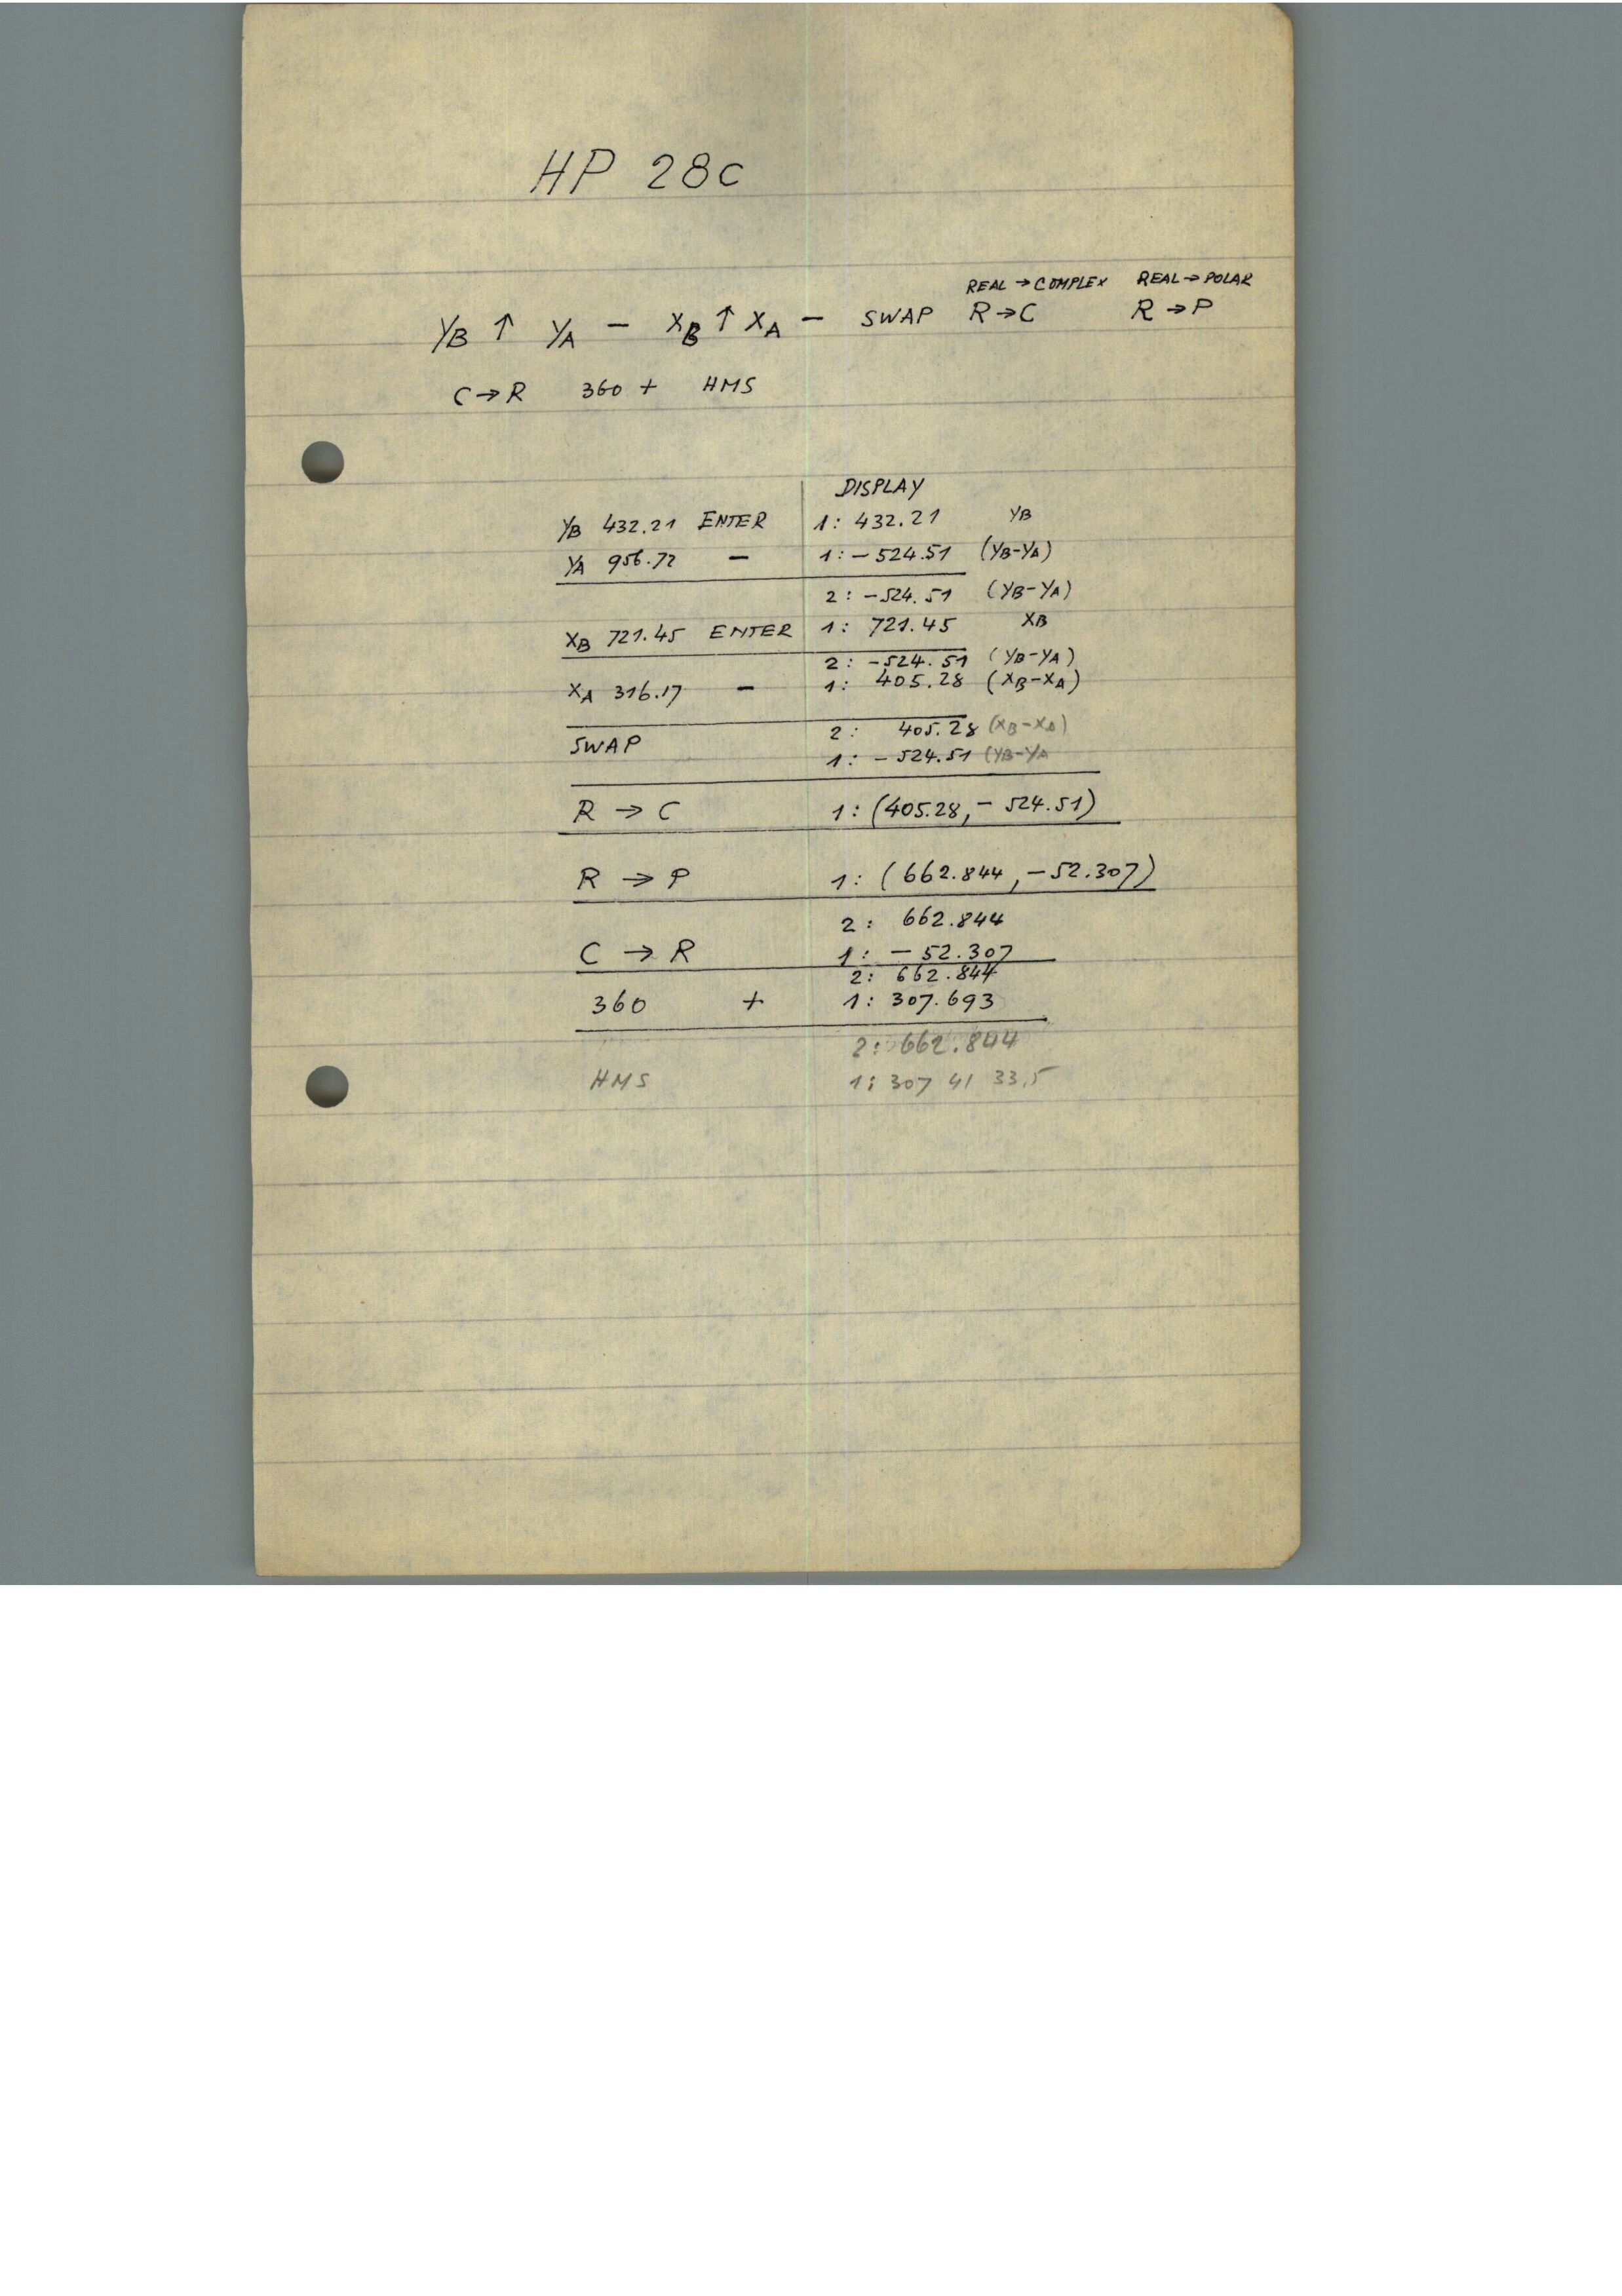 HP 28C
REAL → COMPLEX REAL → POLAR
YB ↑ YA - XB ↑ XA - SWAP R → C R → P
C → R 360 + HMS
DISPLAY
YB 432.21 ENTER 1: 432.21 YB
YA 956.72 - 1: -524.51 (YB-YA)
2: -524.51 (YB-YA)
XB 721.45 ENTER 1: 721.45 XB
2: -524.51 (YB-YA)
XA 316.17 - 1: 405.28 (XB-XA)
2: 405.28 (XB-XA)
SWAP 1: -524.51 (YB-YA
R → C 1: (405.28, -524.51)
R → P 1: (662.844, -52.307)
2: 662.844
C → R 1: -52.307
2: 662.844
360 + 1: 307.693
2: 662.844
HMS 1: 307 41 33,5